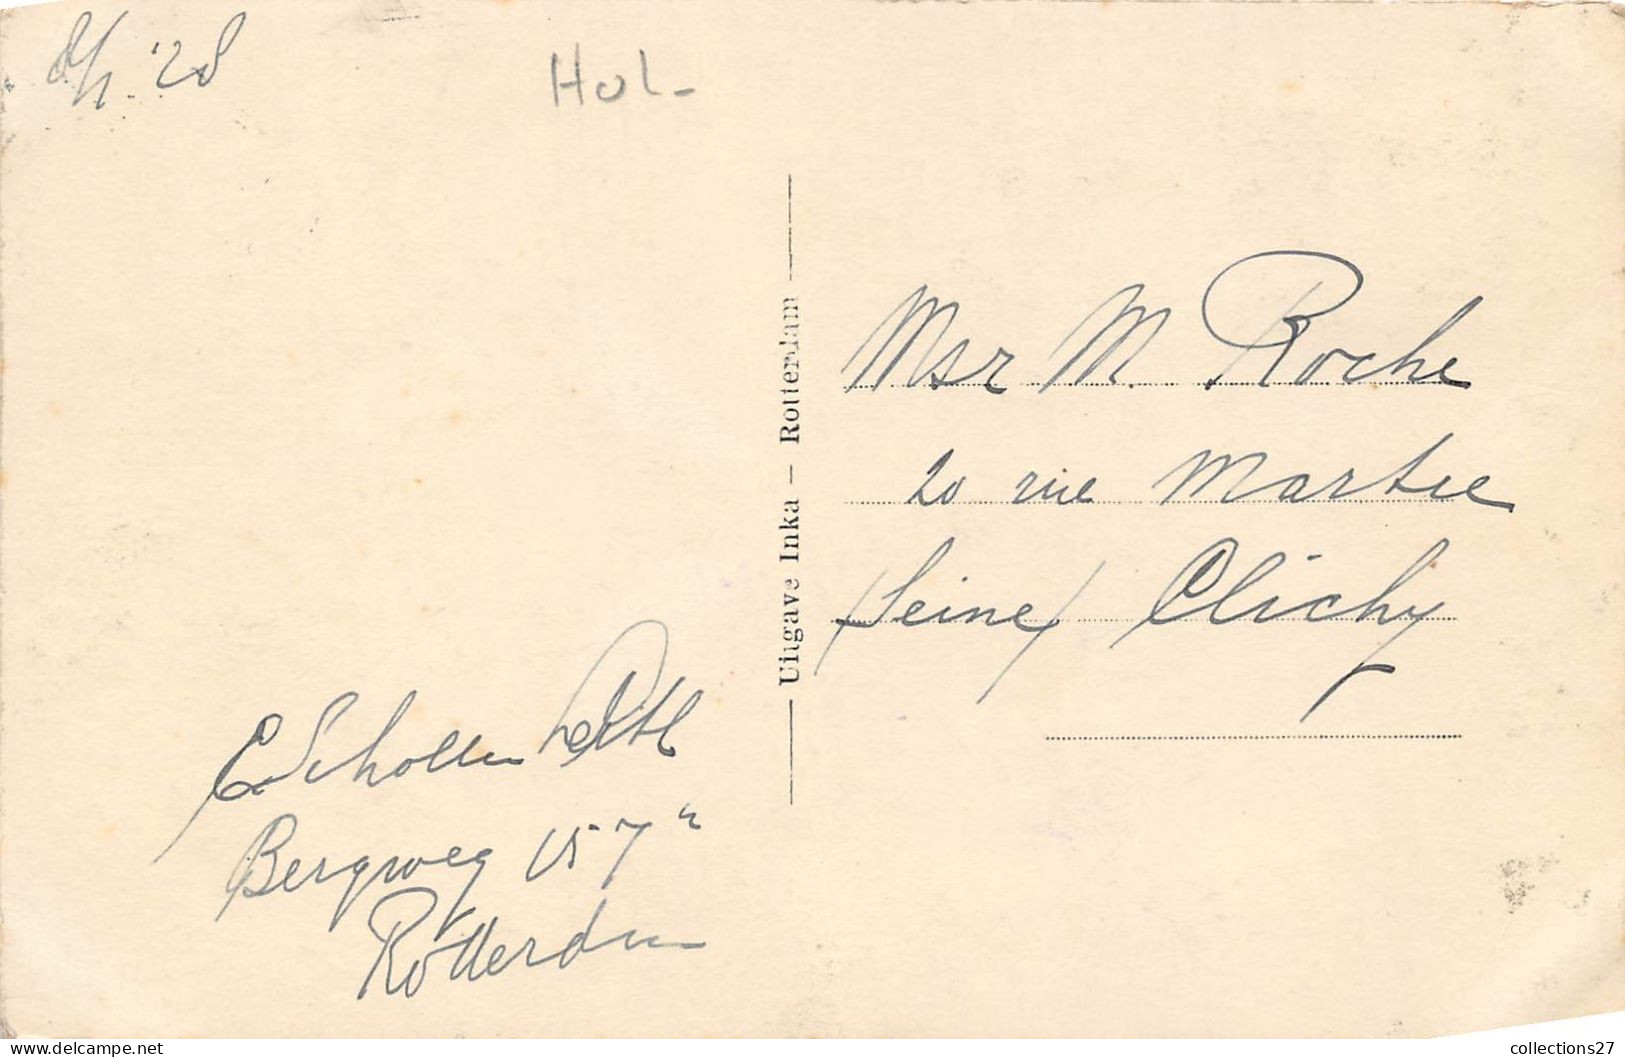 8/1 '28
Hol-
Uitgave Inka — Rotterdam
Msr M. Roche
20 rue Martre
/Seine/ Clichy
E. Scholten
Bergweg 157"
Rotterdam
collections27